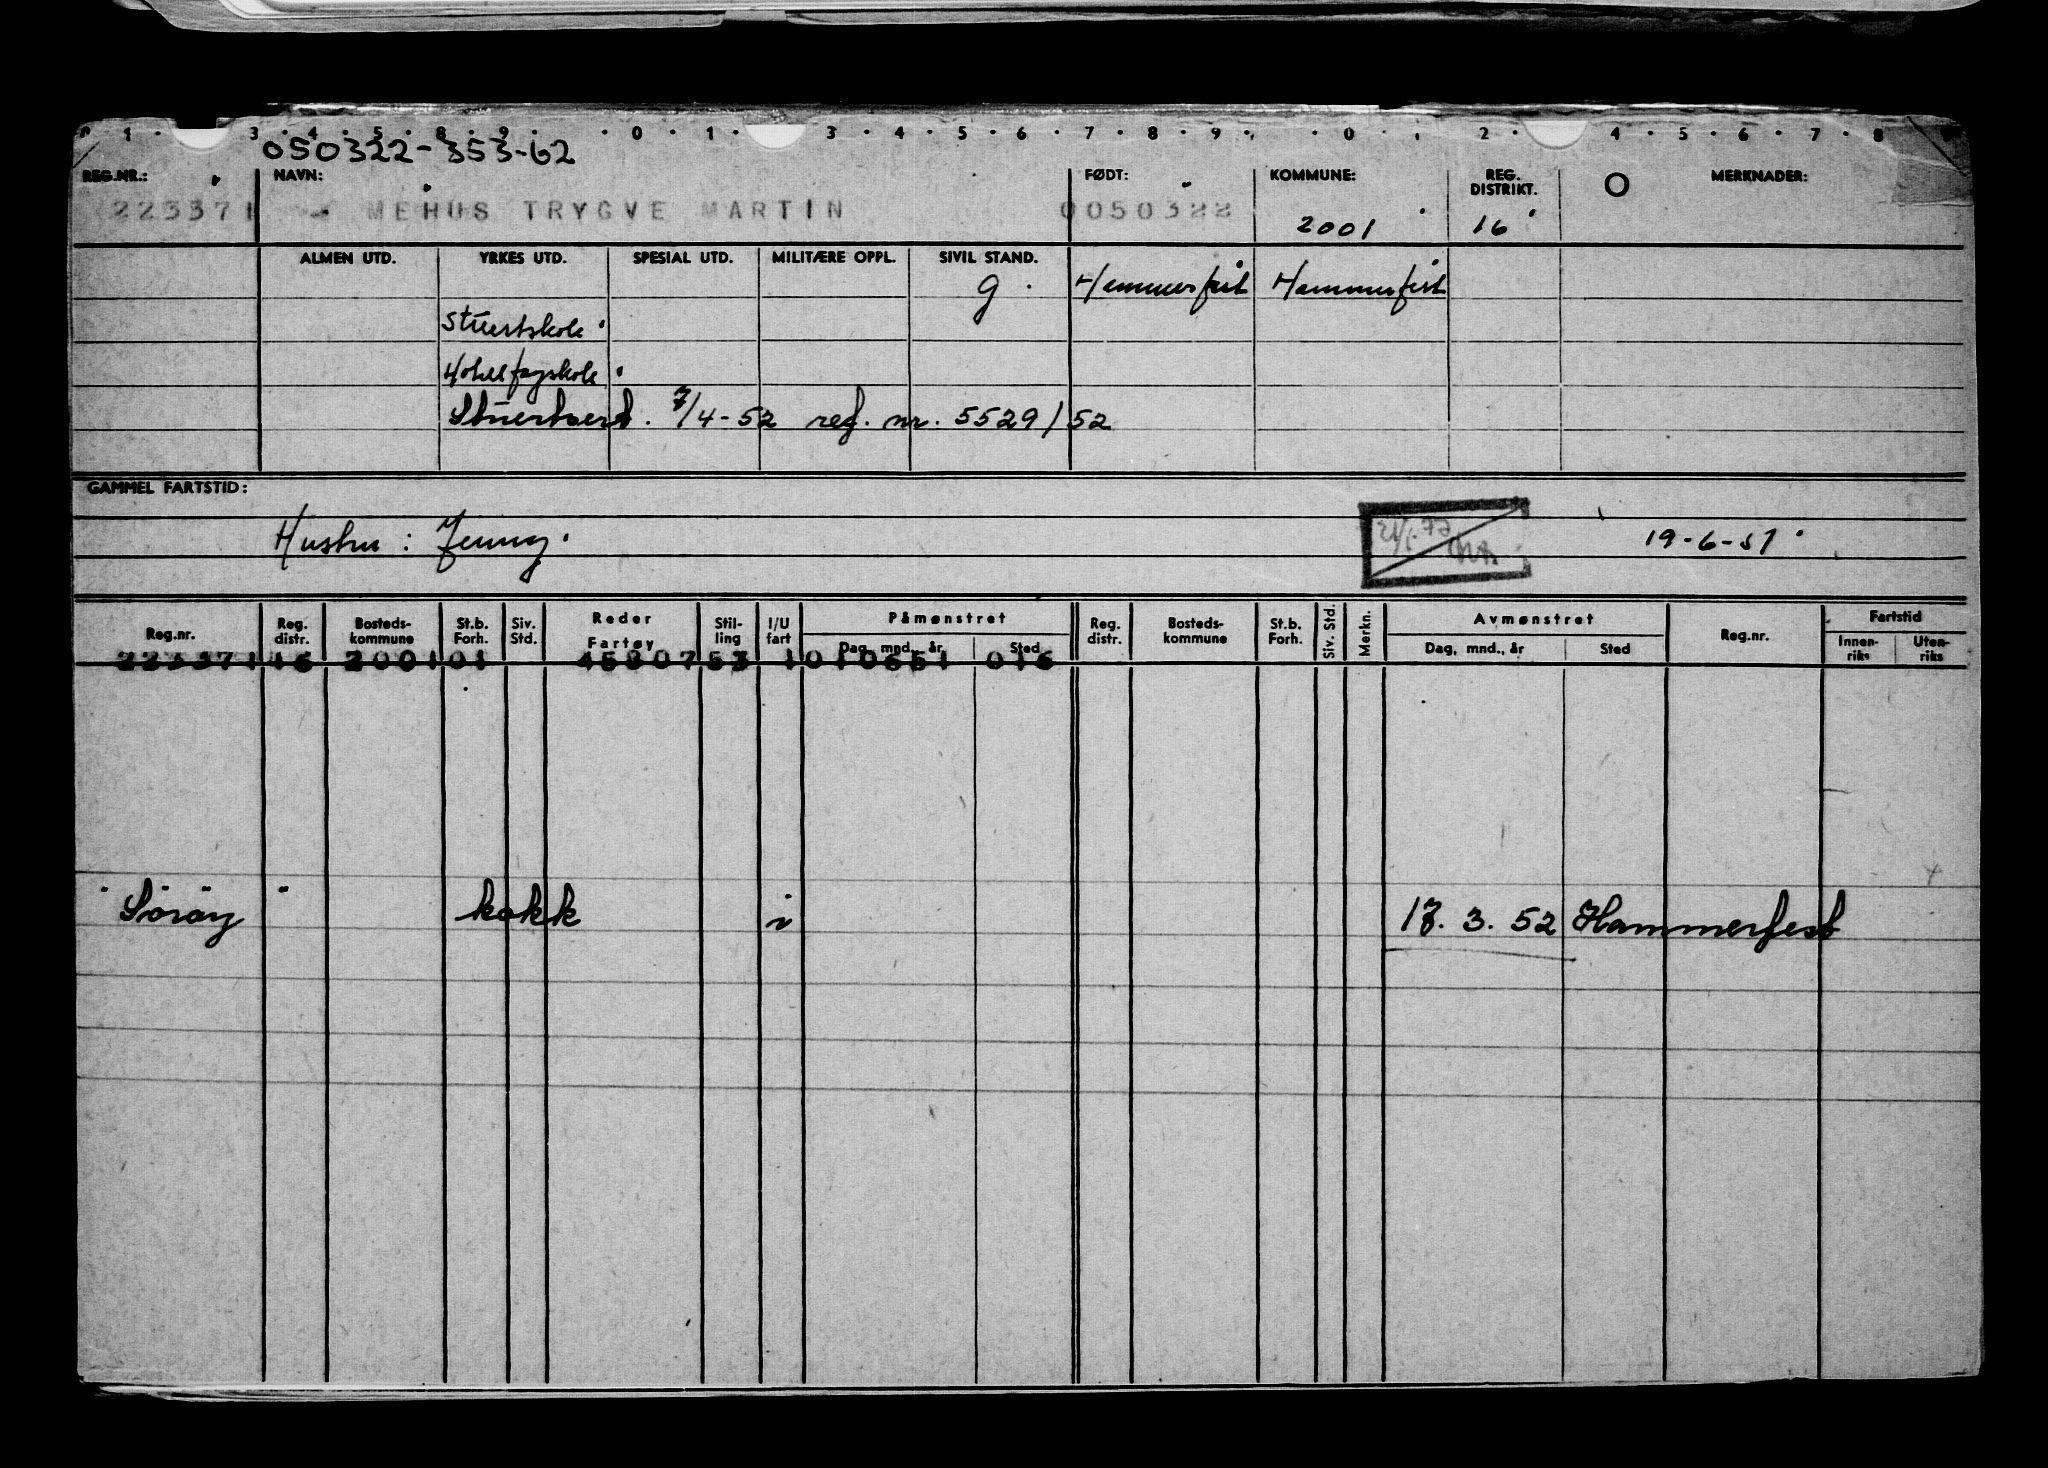 1 . 3 . 4 . 5 . 8 . 9 . . 0 . 1 . 3 . 4 . 5 . 6 . 7 . 8 . 9 . . 0 . . 2 . 4 . 5 . 6 . 7 . 8
050322-353-62
REG.NR.: NAVN: FØDT: KOMMUNE: REG. DISTRIKT. O MERKNADER:
223371 MEHUS TRYGVE MARTIN 0050322 2001 16
ALMEN UTD. YRKES UTD. SPESIAL UTD. MILITÆRE OPPL. SIVIL STAND.
g Hammerfest Hammerfest
Stuertskole
Hotellfagskole
Stuertsert. 7/4-52 reg. nr. 5529/52
GAMMEL FARTSTID:
Hustru: Jenny. 19-6-51
Reg.nr. Reg. distr. Bosteds-kommune St.b. Forh. Siv. Std. Reder Fartøy Stil-ling I/U fart Påmønstret Dag, mnd., år Sted Reg. distr. Bosteds-kommune St.b. Forh. Siv. Std. Merkn. Avmønstret Dag, mnd., år Sted Reg.nr. Fartstid Innen-riks Uten-riks
223371 16 2001 01 45307 53 1 010651 016
"Sörøy" kokk i 17. 3. 52 Hammerfest